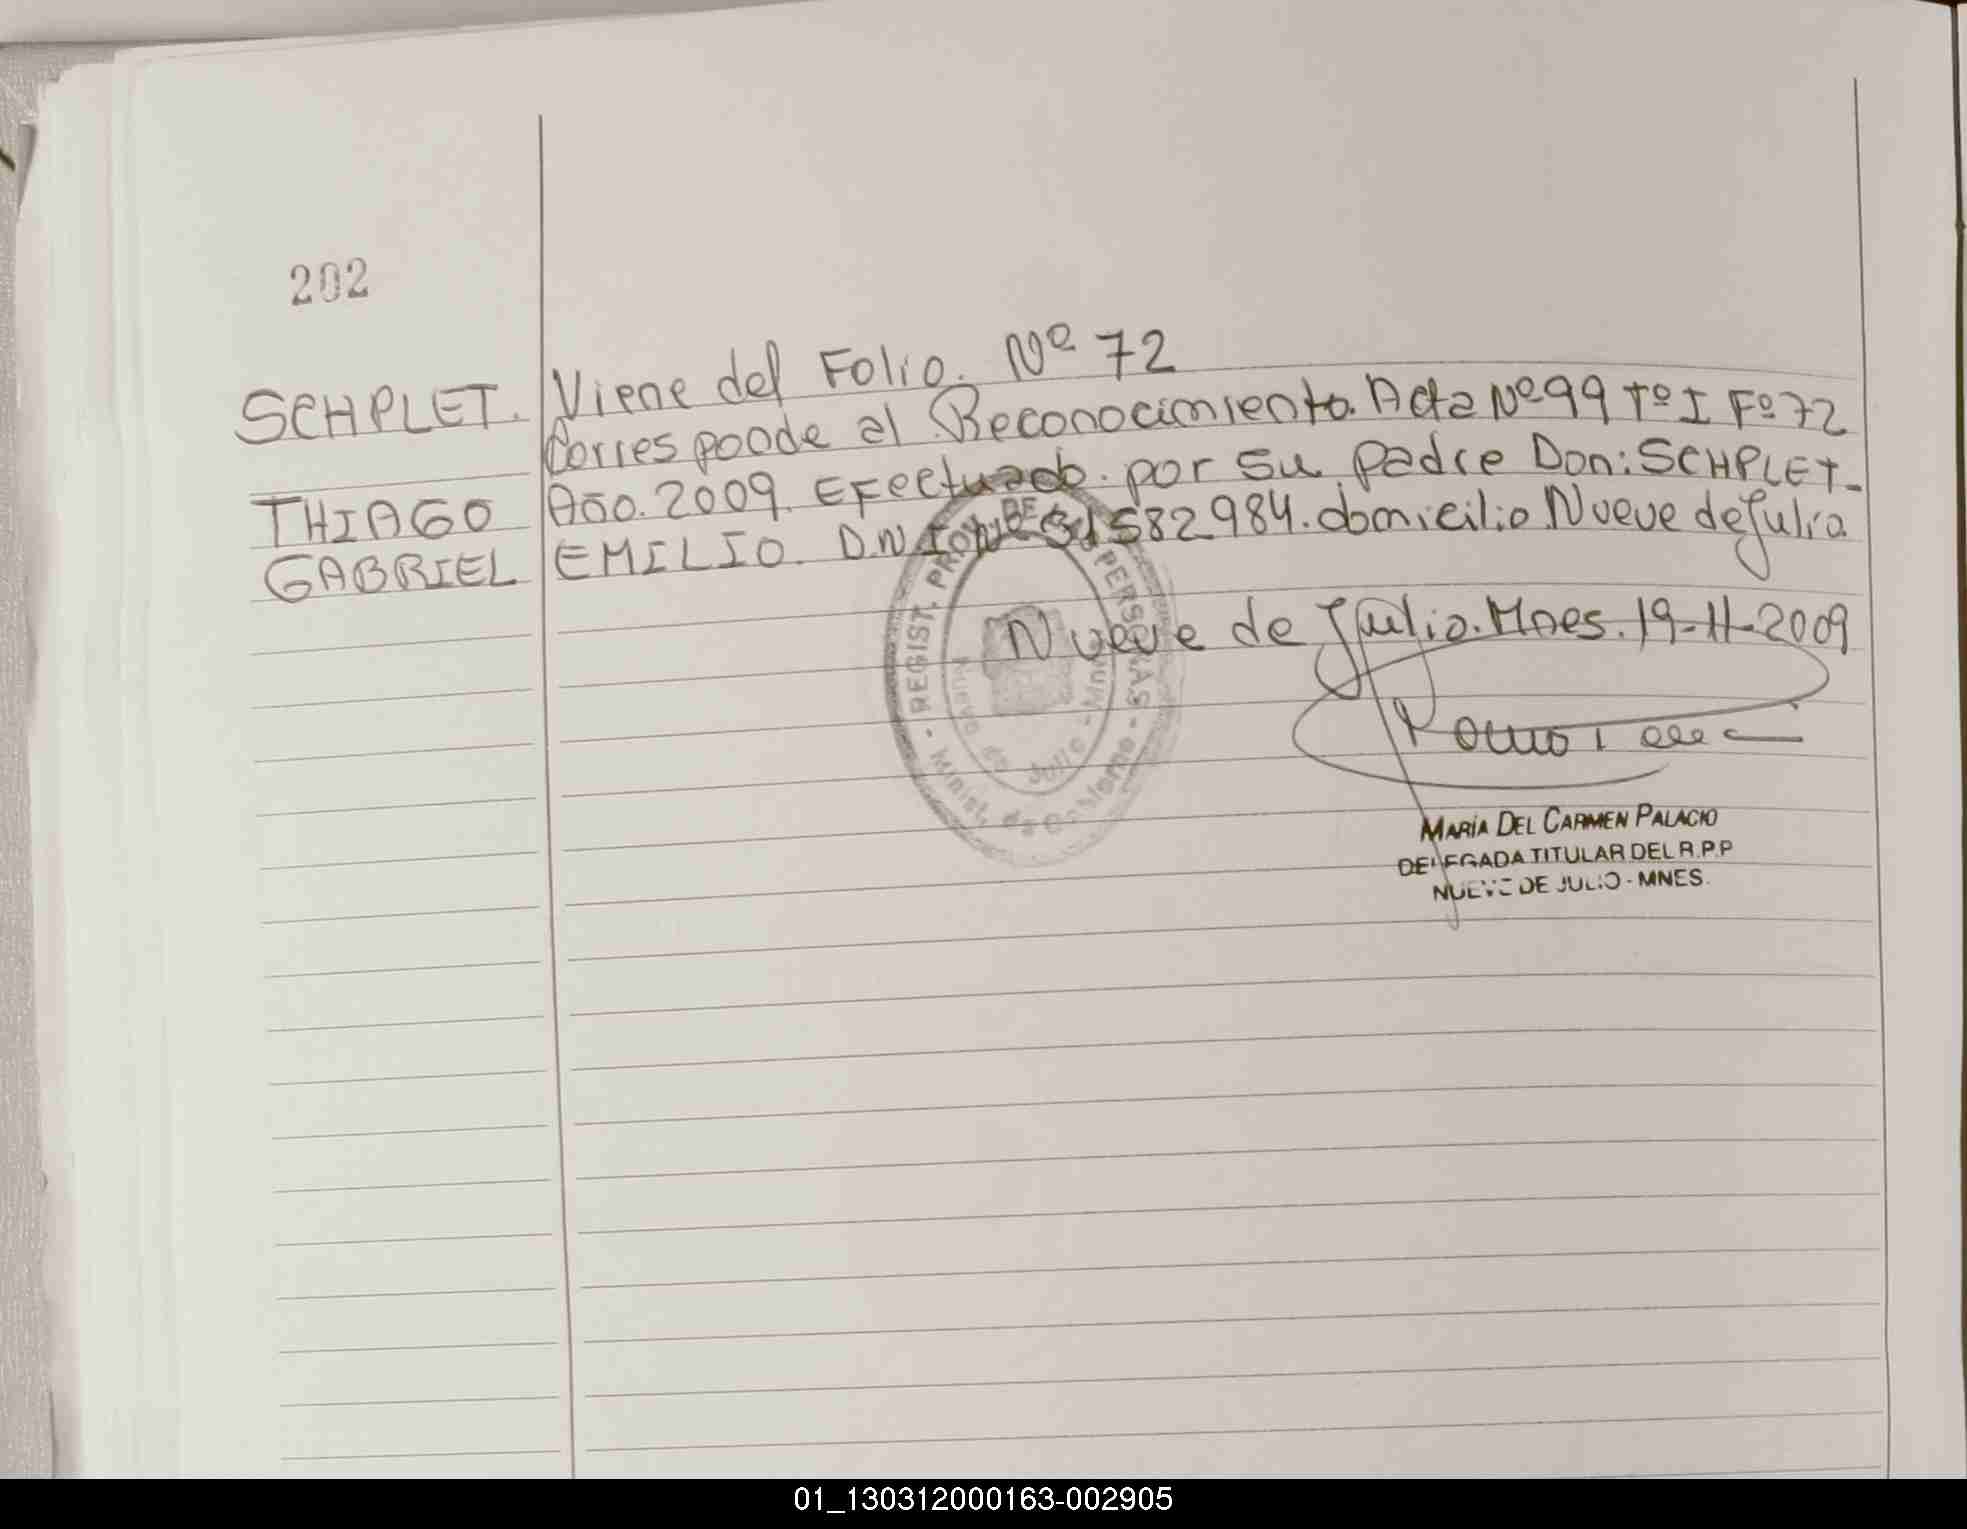 202
Viene del Folio. Nº 72
SCHPLET.
Corresponde al Reconocimiento. Acta Nº 99 Tº I Fº 72
Año. 2009. Efectuado. por su padre Don: SCHPLET_
THIAGO
EMILIO. D.N.I. Nº 31582984. domicilio Nueve de Julio.
GABRIEL
Nueve de Julio. Mnes. 19-11-2009
REGIST. PROV. DE PERSONAS - Minist. de Gobierno -
Nueve de Julio - Mnes
MARÍA DEL CARMEN PALACIO
DELEGADA TITULAR DEL R.P.P
NUEVE DE JULIO - MNES.
01_130312000163-002905